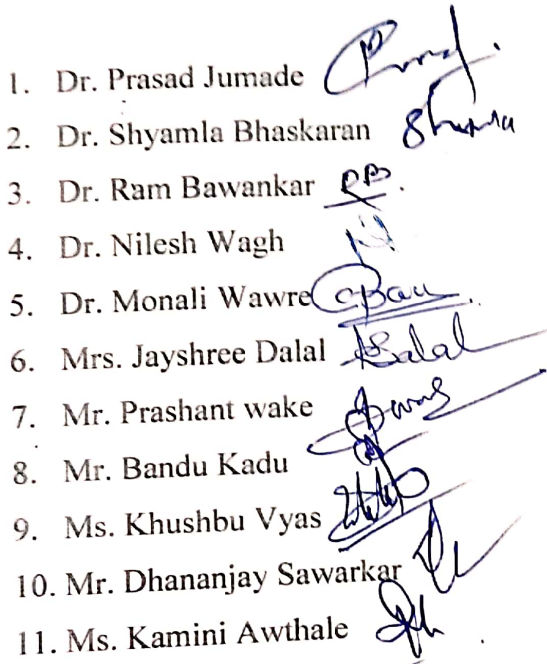 1. Dr. Prasad Jumade
2. Dr. Shyamla Bhaskaran
3. Dr. Ram Bawankar PB.
4. Dr. Nilesh Wagh
5. Dr. Monali Wawre
6. Mrs. Jayshree Dalal Dalal
7. Mr. Prashant wake
8. Mr. Bandu Kadu
9. Ms. Khushbu Vyas
10. Mr. Dhananjay Sawarkar
11. Ms. Kamini Awthale